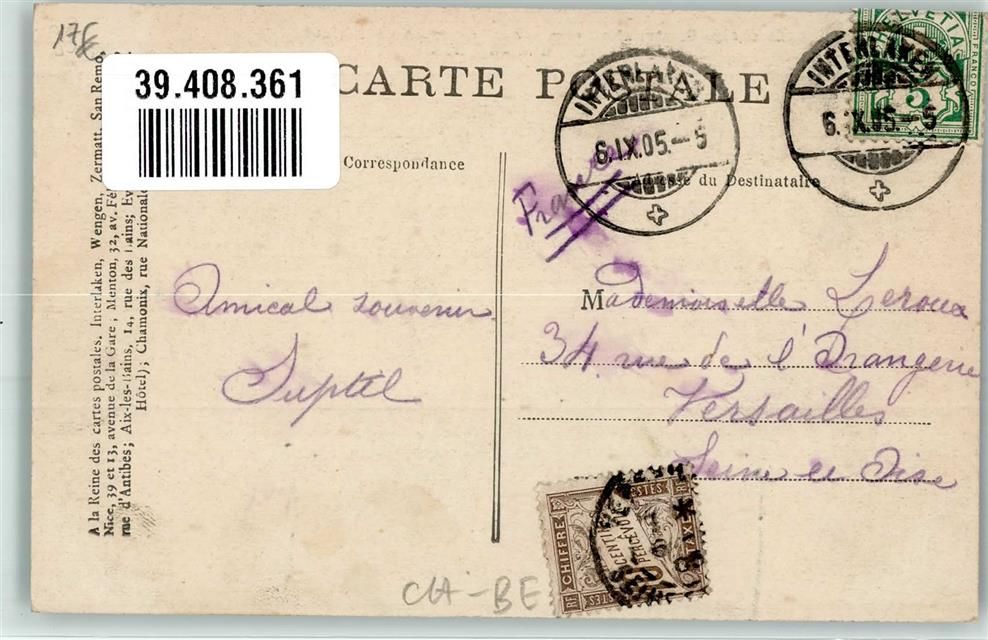 178
39.408.361
CARTE POSTALE
Correspondance
Adresse du Destinataire
INTERLAKEN
6.IX.05.-5
INTERLAKEN
6.IX.05.-5
HELVETIA
FRANCO
5
France
Amical souvenir
Mademoiselle Leroux
34 rue de l'Orangerie
Versailles
Seine et Oise
A la Reine des cartes postales. Interlaken, Wengen, Zermatt, San Remo
Nice, 39 et 13, avenue de la Gare; Menton, 32, av. Fé
rue d'Antibes; Aix-les-Bains, 14, rue des Bains; Ev
Hôtel); Chamonix, rue Nationale
CHIFFRE
CENTIMES
A
PERCEVOIR
TAXE
POSTES
RF
CH-BE